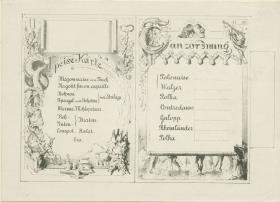 Speise-Karte
Mayonnaise von Fisch
Ragout fin en coquille
Rehrücken
Spargel
Warme Mehlspeise
Reh-
Puten-
Braten
Compot. Salat.
Eis.
Tanzordnung
Polonaise
Walzer
Polka
Contredanse
Galopp
Rheinländer
Polka